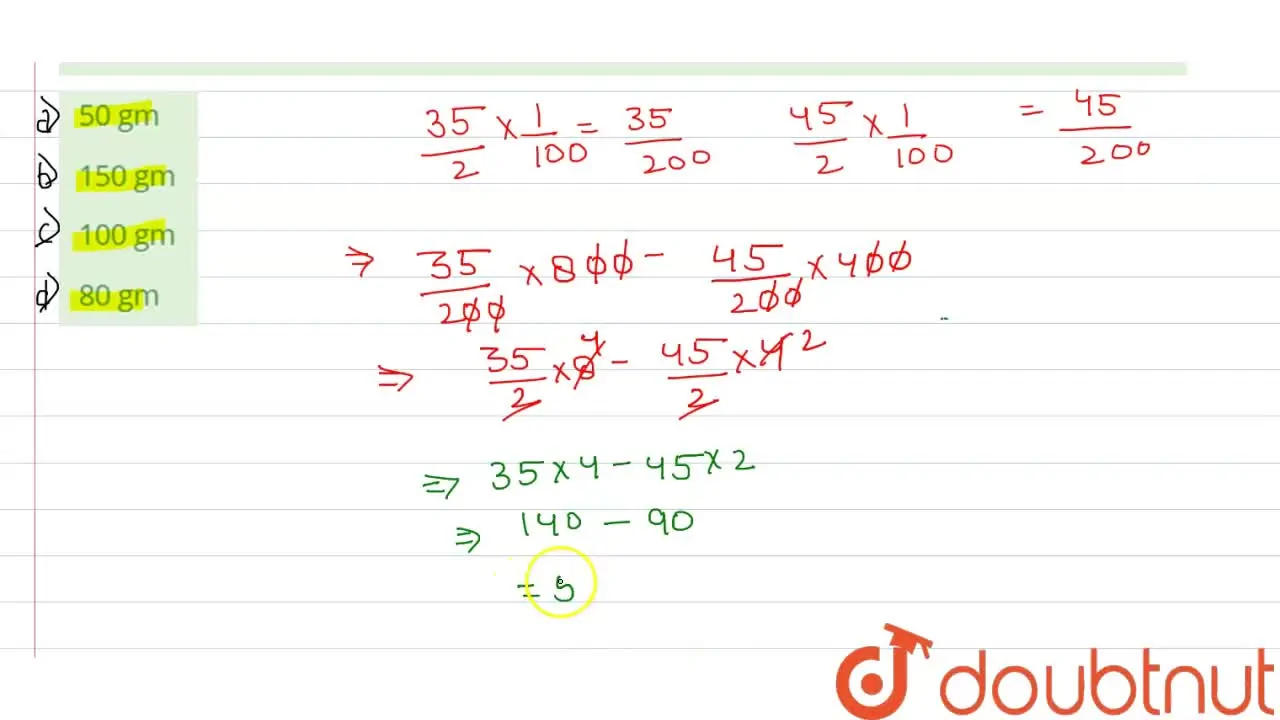 a) 50 gm
b) 150 gm
c) 100 gm
d) 80 gm
35/2 × 1/100 = 35/200 45/2 × 1/100 = 45/200
⇒ 35/200 × 800 - 45/200 × 400
⇒ 35/2 × 8 4 - 45/2 × 4 2
⇒ 35 × 4 - 45 × 2
⇒ 140 - 90
= 5
doubtnut